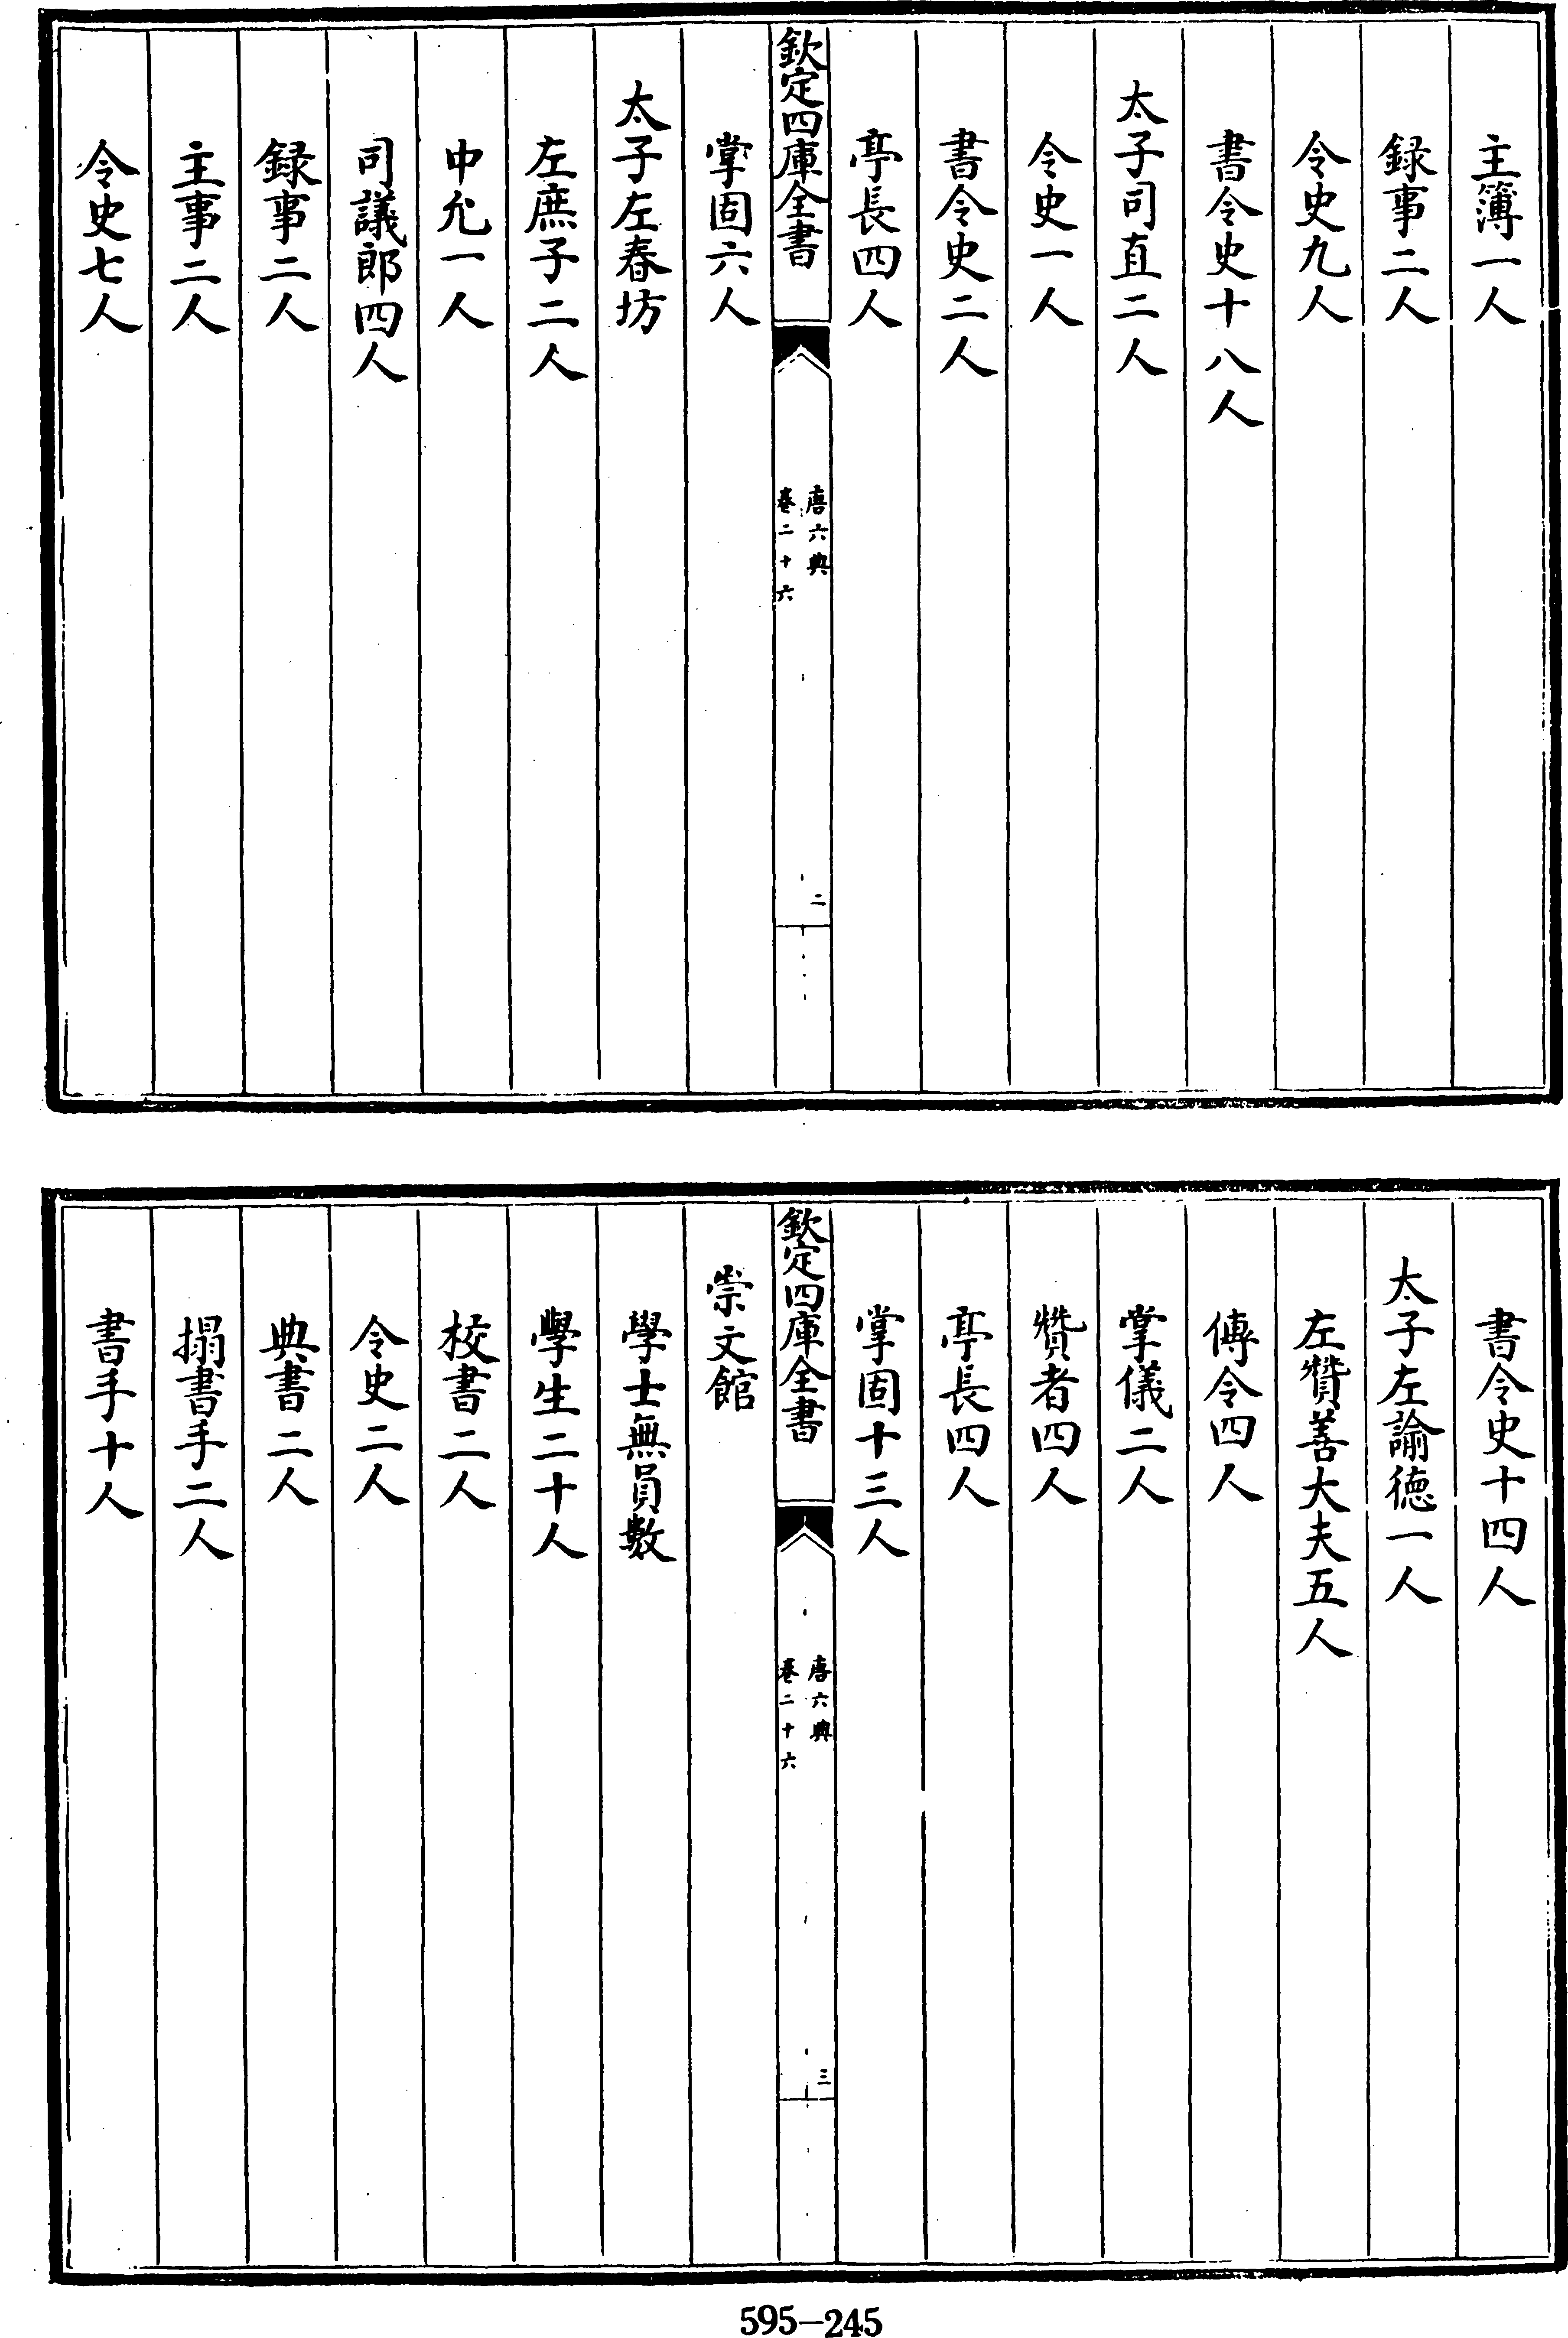 主簿一人
録事二人
令史九人
書令史十八人
太子司直二人
令史一人
書令史二人
亭長四人
欽定四庫全書
唐六典
卷二十六
二
掌固六人
太子左春坊
左庶子二人
中允一人
司議郎四人
録事二人
主事二人
令史七人
書令史十四人
太子左諭徳一人
左贊善大夫五人
傳令四人
掌儀二人
贊者四人
亭長四人
掌固十三人
欽定四庫全書
唐六典
卷二十六
三
崇文館
學士無員數
學生二十人
校書二人
令史二人
典書二人
搨書手二人
書手十人
595-245